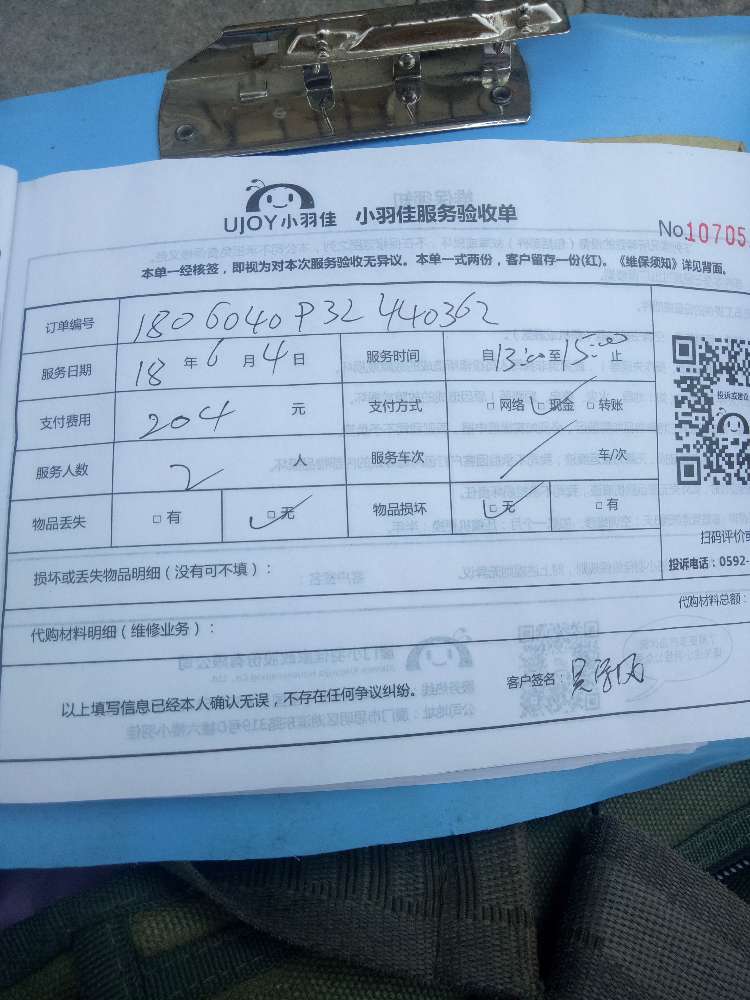 UJOY小羽佳 小羽佳服务验收单
No 10705
本单一经核签，即视为对本次服务验收无异议。本单一式两份，客户留存一份(红)。《维保须知》详见背面。
订单编号 1806040P32440362
服务日期 18 年 6 月 4 日 服务时间 自 13:00 至 15:00 止
支付费用 204 元 支付方式 □ 网络 □ 现金 □ 转账
投诉或建议
服务人数 2 人 服务车次 / 车/次
物品丢失 □ 有 □ 无 物品损坏 □ 无 □ 有
扫码评价或
损坏或丢失物品明细（没有可不填）：
投诉电话：0592-
代购材料总额：
代购材料明细（维修业务）：
以上填写信息已经本人确认无误，不存在任何争议纠纷。
客户签名：